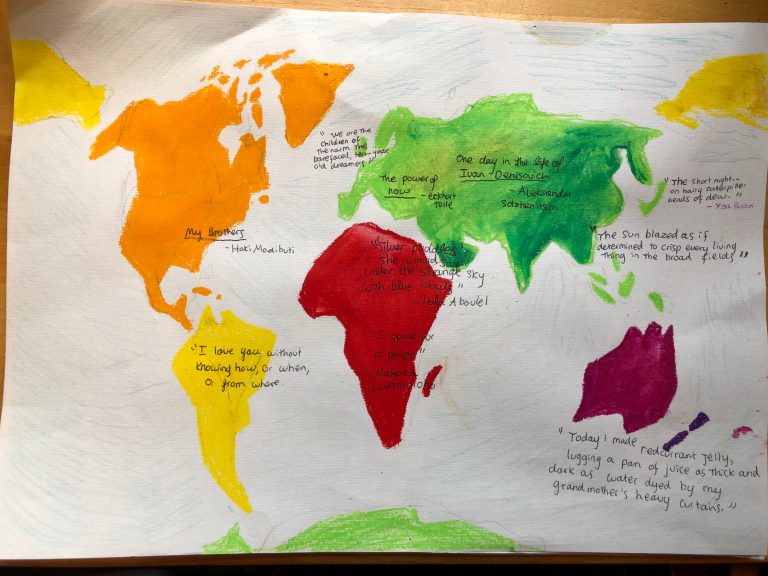 "We are the
children of
the north. The
barefaced, ten-year
old dreamers."
One day in the life of
Ivan Denisovich
- Aleksander
Solzhenitsen
The power of
now
- Eckhart
Tolle
"The short night--
on hairy caterpillar
beads of dew."
- Yosa Buson
My Brothers
- Haki Madibuti
"Silver puddles
She would
under the strange sky
with blue
- Leila Aboulel
"The Sun blazed as if
determined to crisp every living
thing in the broad fields"
"I love you without
knowing how, or when,
or from where
"I speak for
a people"
"Today I made redcurrant jelly,
lugging a pan of juice as thick and
dark as water dyed by my
grandmother's heavy curtains."